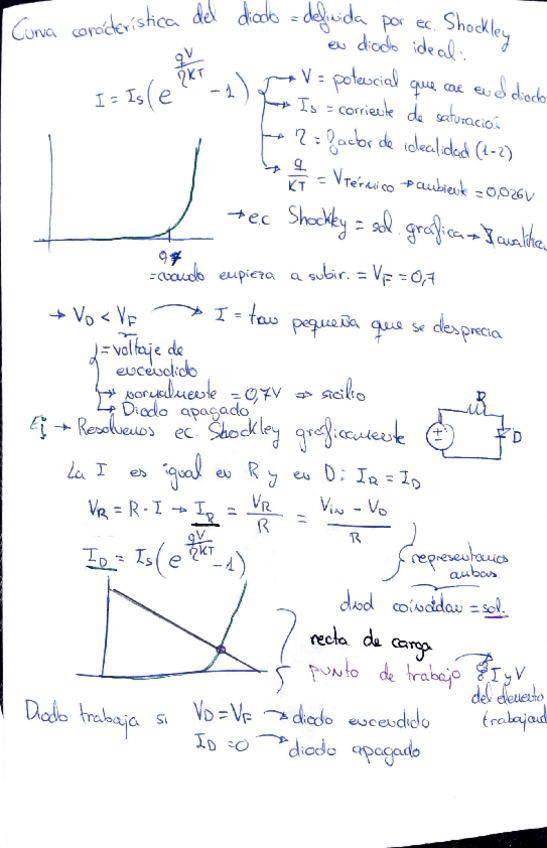 Curva característica del diodo = definida por ec. Shockley
en diodo ideal:
I = Is(e^(qV/ηKT) - 1)
→ V = potencial que cae en el diodo
→ Is = corriente de saturación
→ η = factor de idealidad (1-2)
→ q/KT = VTérmico → ambiente = 0,026V
→ ec Shockley = sol. gráfica →
= cuando empieza a subir. = VF = 0,7
→ VD < VF → I = tan pequeña que se desprecia
= voltaje de
encendido
→ normalmente = 0,7V ⇒ silicio
→ Diodo apagado
Ej → Resolvemos ec. Shockley gráficamente
R
D
La I es igual en R y en D: IR = ID
VR = R · I → IR = VR/R = (Vin - VD)/R
ID = Is(e^(qV/ηKT) - 1)
representamos
ambas
dnd coincidan = sol.
recta de carga
punto de trabajo → I y V
del elemento
trabajand
Diodo trabaja si VD = VF → diodo encendido
ID = 0 → diodo apagado